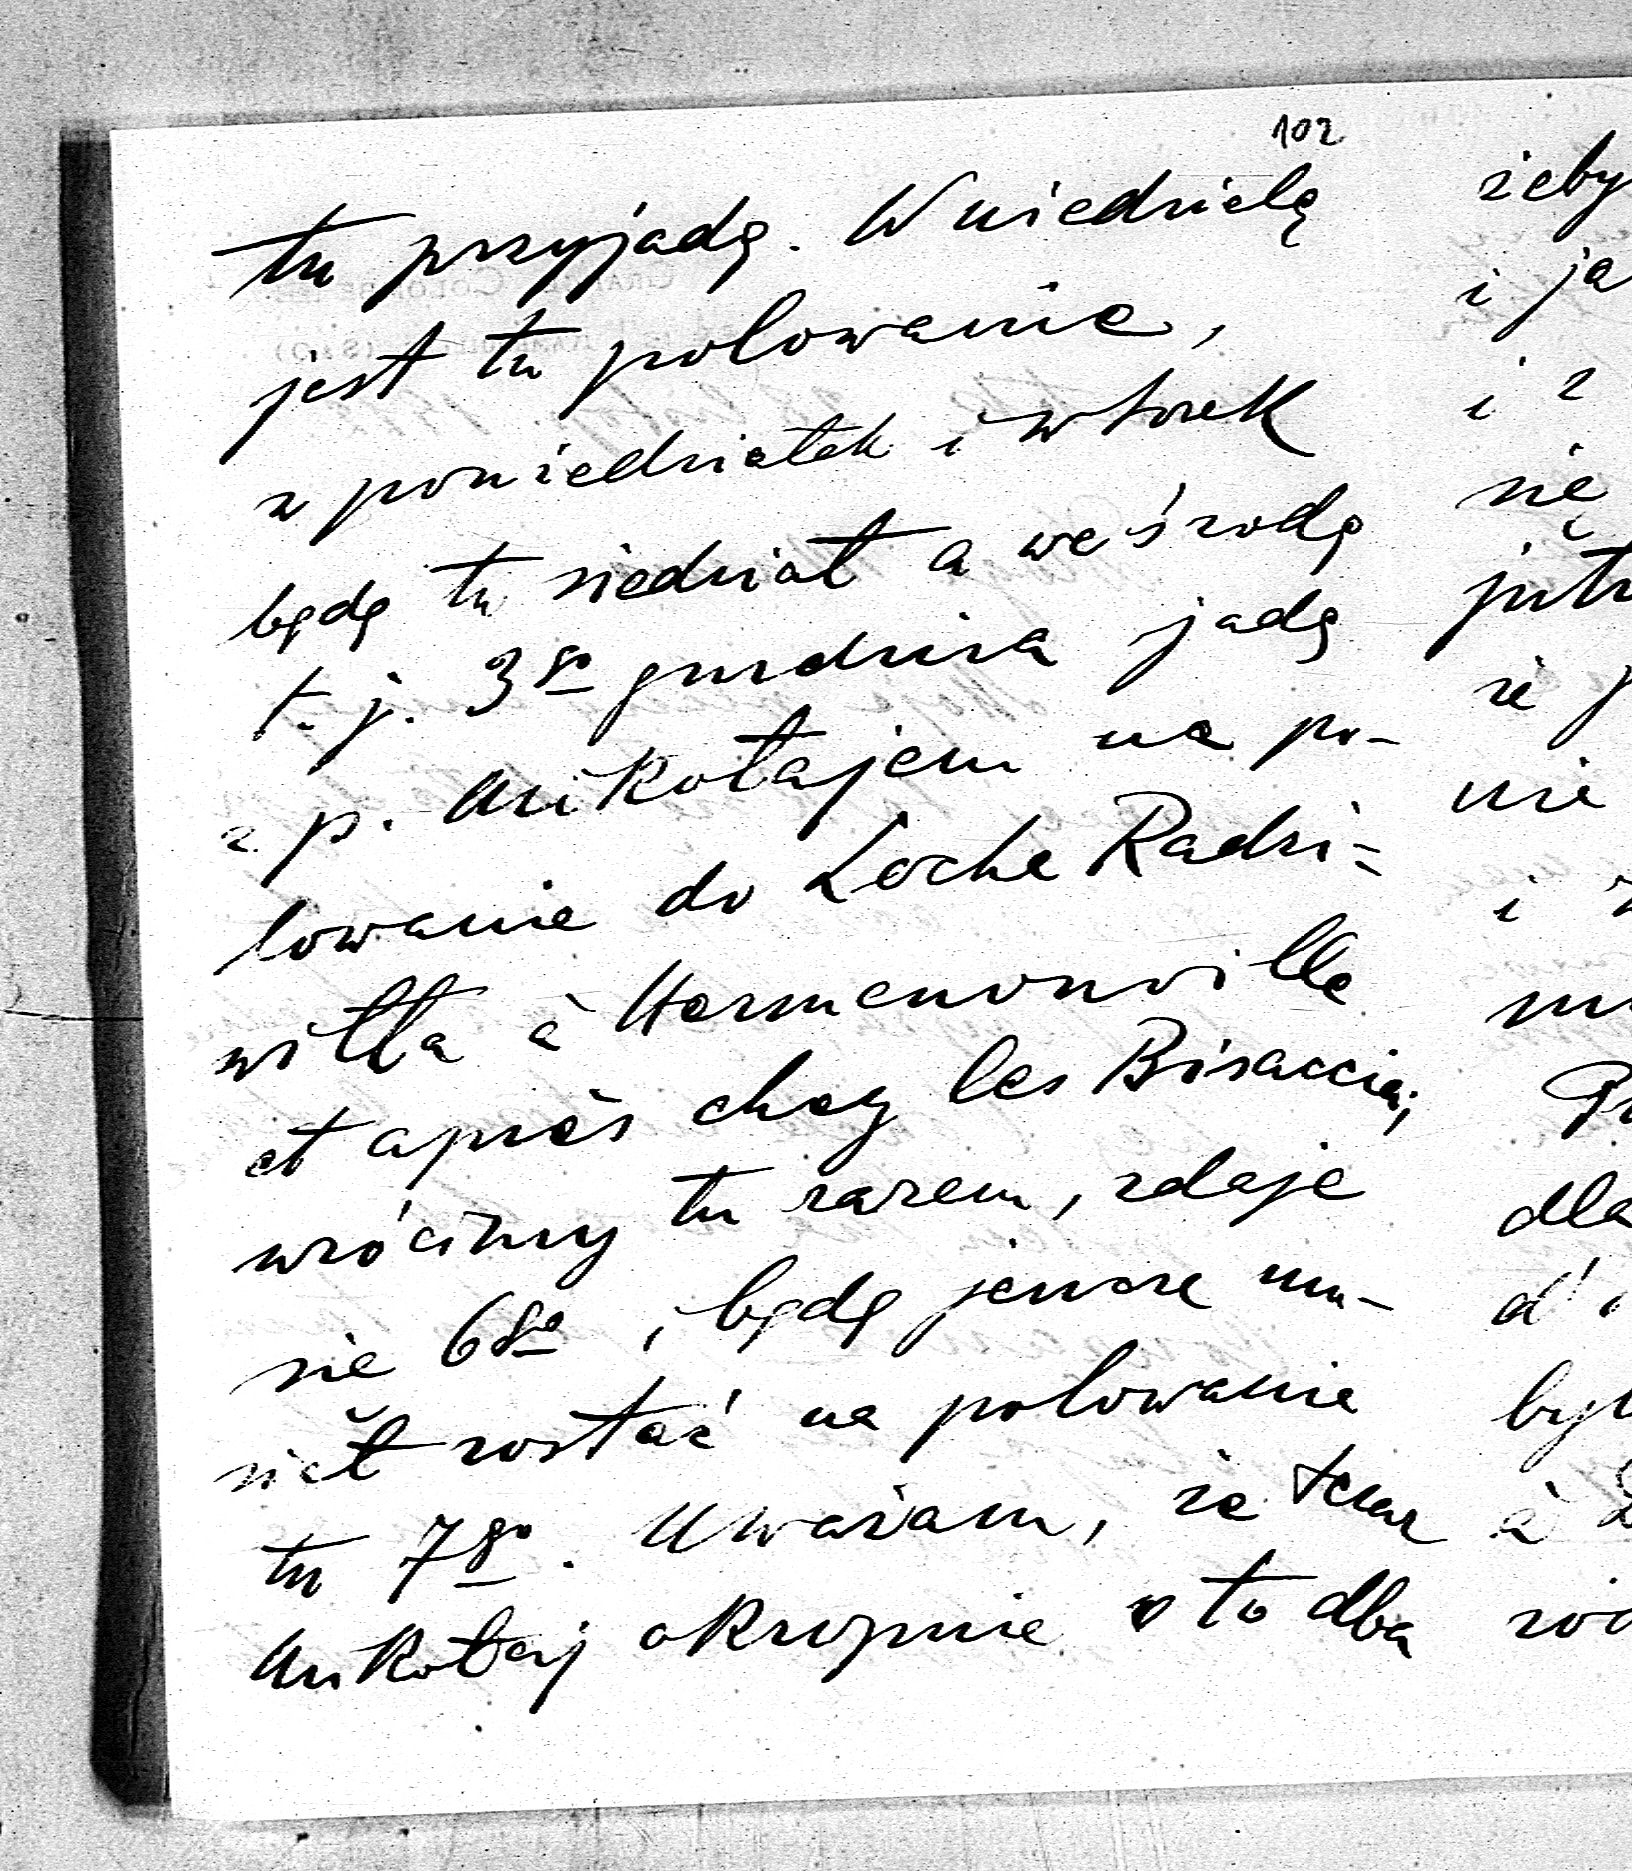 102
tu przyjadę. W niedzielę
jest tu polowanie,
w poniedziałek i wtorek
będę tu siedział a we środę
t. j. 3go grudnia jadę
z p. Mikołajem na po-
lowanie do Loche Radzi-
wiłła à Hermenonville
et après chez les Bisaccia;
wrócimy tu razem, zdaje
sie 6go, będę jeszcze mu-
siał zostać na polowanie
tu 7go. Uważam, że teraz
Mikołaj okropnie o to dba
żeby
i ja
i z
się
jut
że p
nie
i
dla
d'
był
à